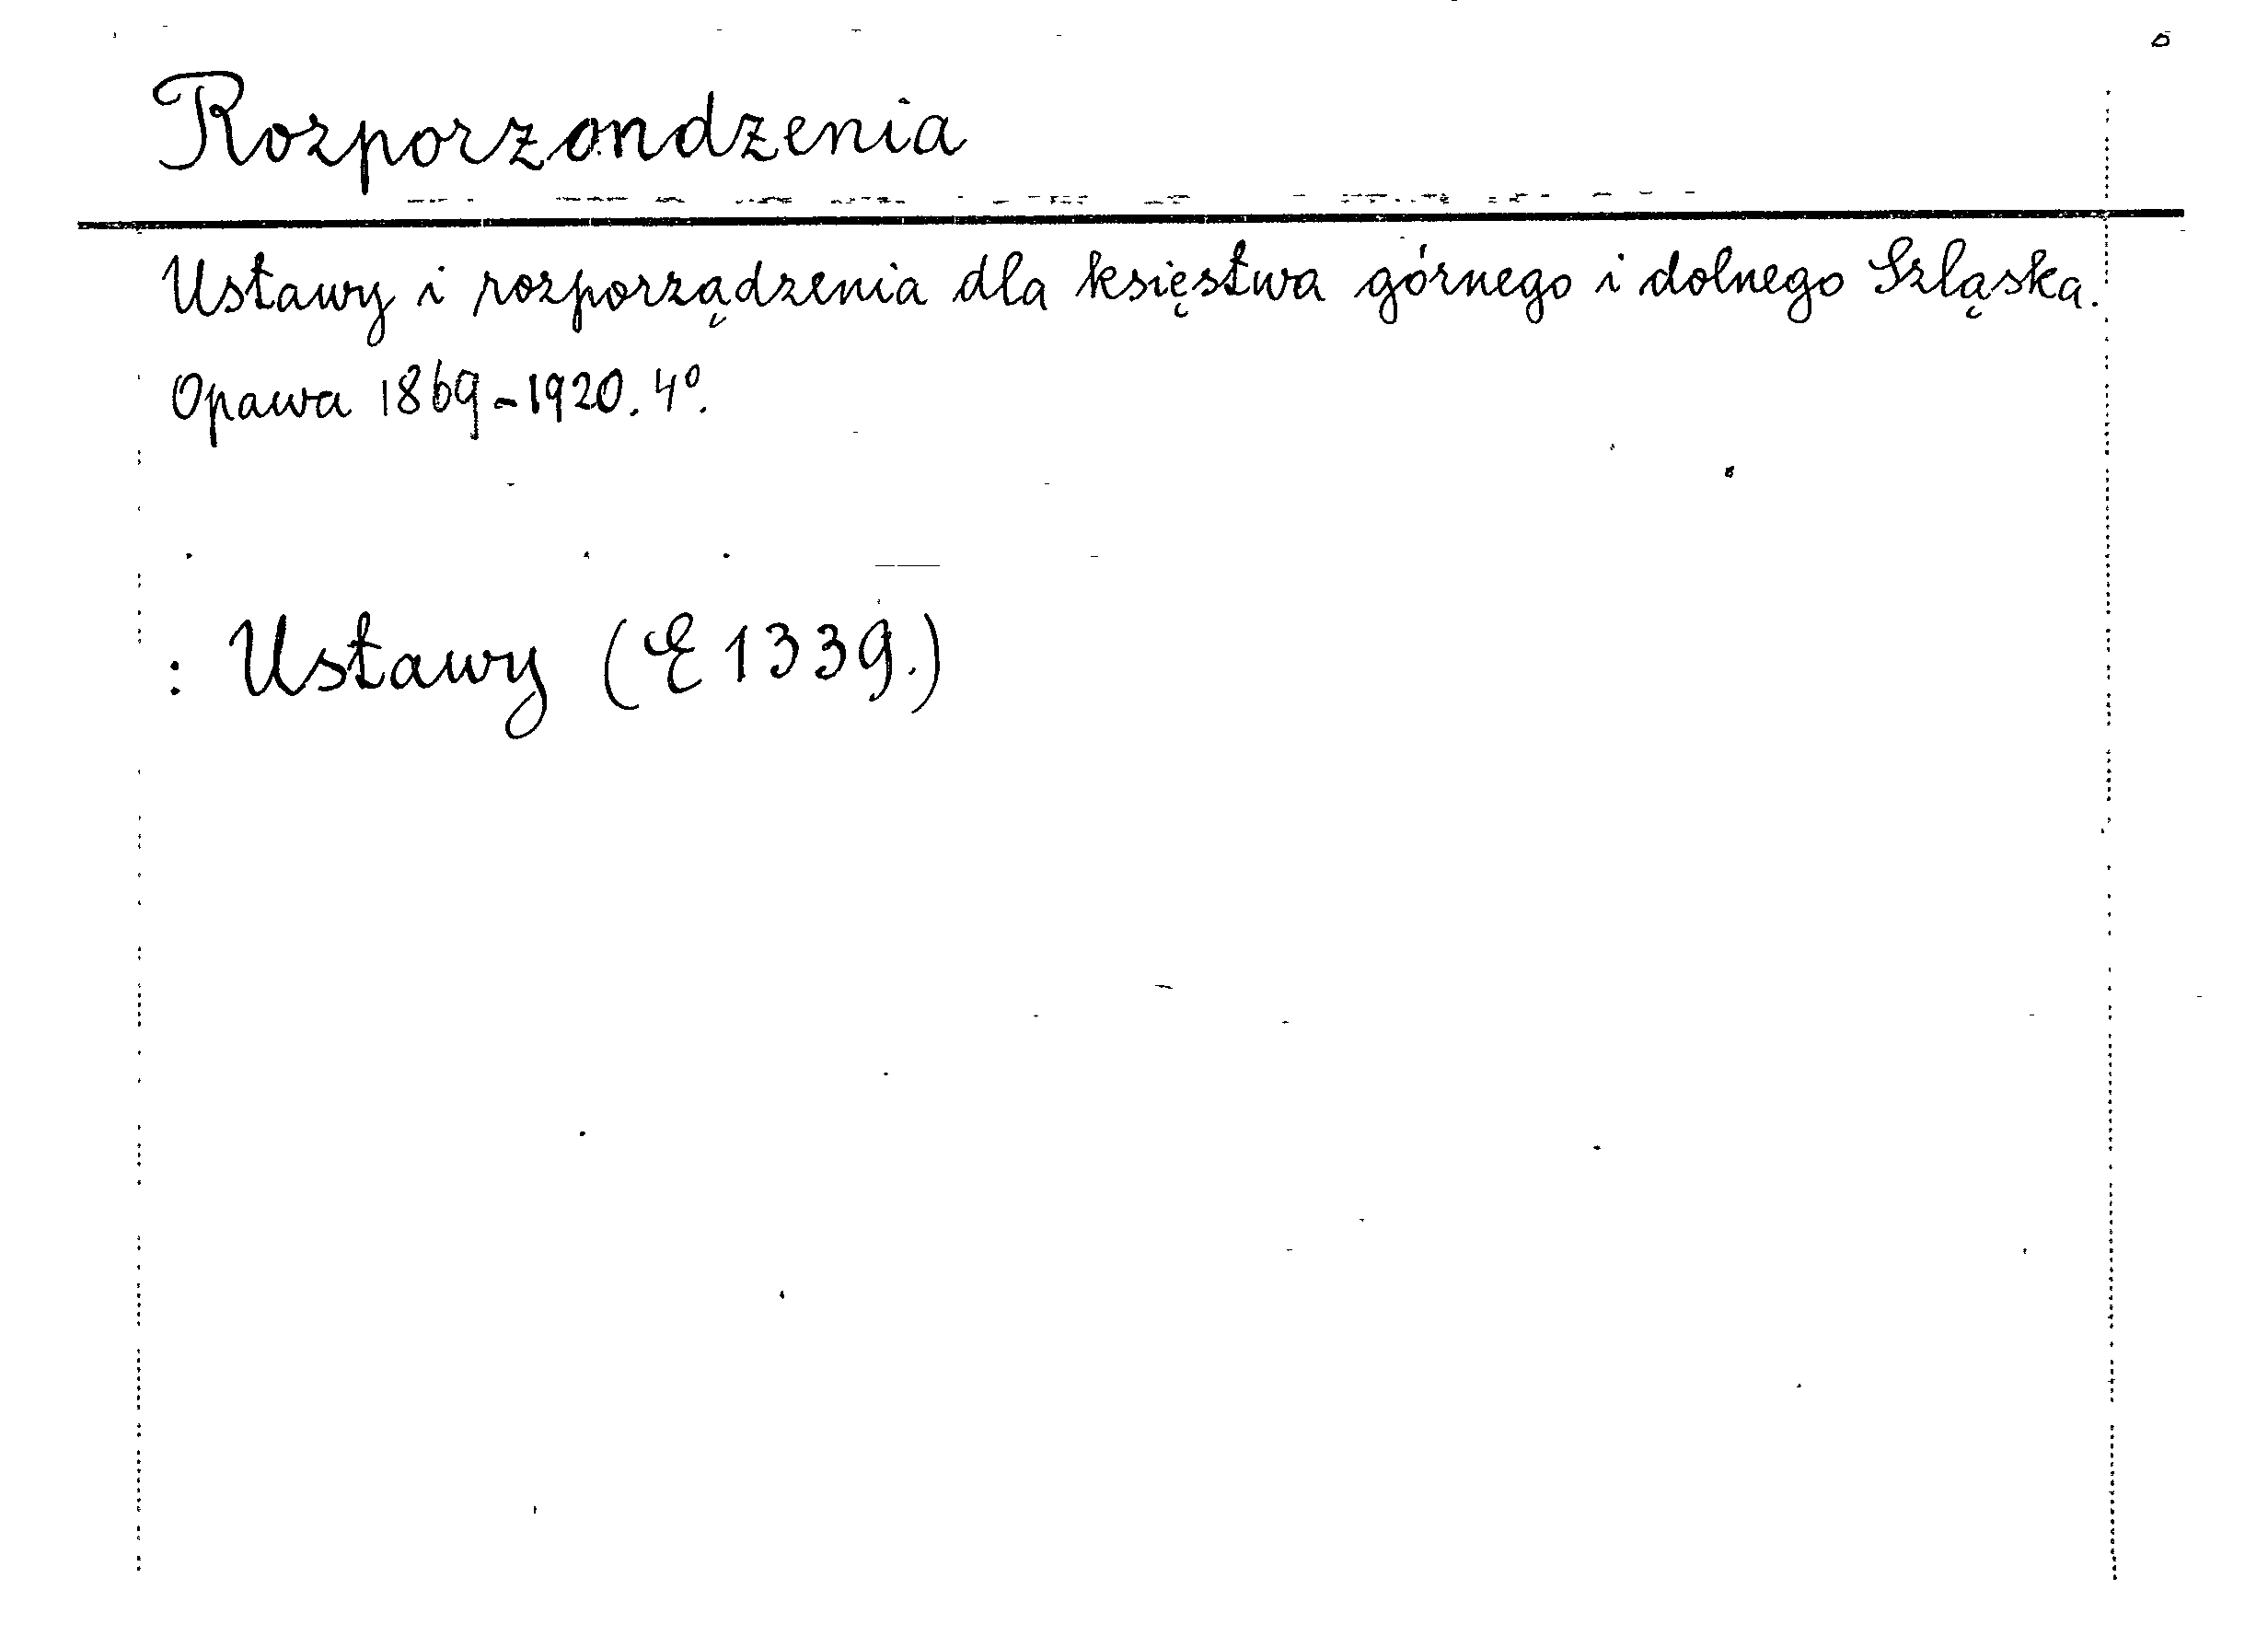 Rozporzondzenia
Ustawy i rozporządzenia dla księstwa górnego i dolnego Szląska.
Opawa 1869-1920. 4º.
: Ustawy (E 1339.)